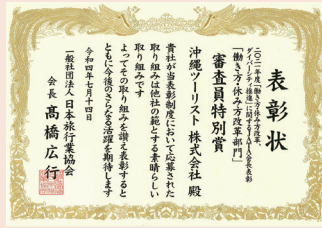 表彰状
二〇二一年度「働き方・休み方改革、
ダイバーシティ推進」に関するJATA会長表彰
「働き方・休み方改革部門」
審査員特別賞
沖縄ツーリスト 株式会社 殿
貴社が当表彰制度において応募された
取り組みは他社の範とする素晴らしい
取り組みです
よってその取り組みを讃え表彰すると
ともに今後のさらなる活躍を期待します
令和四年七月十四日
一般社団法人 日本旅行業協会
会長 髙橋広行